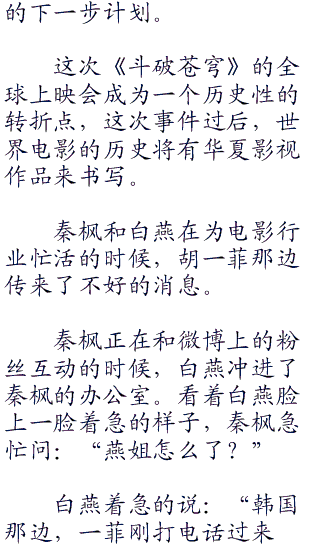 的下一步计划。
这次《斗破苍穹》的全
球上映会成为一个历史性的
转折点，这次事件过后，世
界电影的历史将有华夏影视
作品来书写。
秦枫和白燕在为电影行
业忙活的时候，胡一菲那边
传来了不好的消息。
秦枫正在和微博上的粉
丝互动的时候，白燕冲进了
秦枫的办公室。看着白燕脸
上一脸着急的样子，秦枫急
忙问：“燕姐怎么了？”
白燕着急的说：“韩国
那边，一菲刚打电话过来